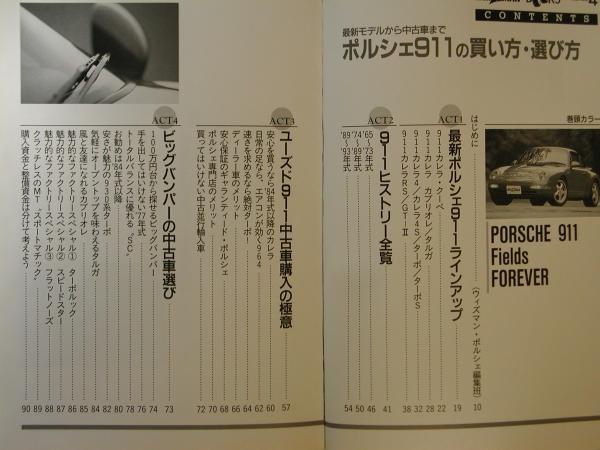 CONTENTS
最新モデルから中古車まで
ポルシェ911の買い方・選び方
巻頭カラー
PORSCHE 911
Fields
FOREVER
はじめに (ウィズマン・ポルシェ編集班) 10
ACT1
最新ポルシェ911ラインアップ 19
911カレラ・クーペ 22
911カレラ カブリオレ/タルガ 28
911カレラ4/カレラ4S/ターボ/ターボS 32
911カレラRS/GTⅡ 38
ACT2
911ヒストリー全覧 41
'65〜'73年式 46
'74〜'89年式 50
'89〜'93年式 54
ACT3
ユーズド911中古車購入の極意 57
安心を買うなら'84年式以降のカレラ 60
日常の足なら、エアコンが効く964 62
速さを求めるなら絶対ターボ! 64
ディーラー車のメリット 66
安心保証のギャランティード・ポルシェ 68
ポルシェ専門店のメリット 70
買ってはいけない中古並行輸入車 72
ACT4
ビッグバンパーの中古車選び 73
100万円台から探せるビッグバンパー 74
手を出してはいけない'77年式 76
トータルバランスに優れる“SC” 78
お勧めは'84年式以降 80
安さが魅力の930系ターボ 82
気軽にオープントップを味わえるタルガ 84
風と友達になれるカブリオレ 85
魅力的なファクトリースペシャル① ターボルック 86
魅力的なファクトリースペシャル② スピードスター 87
魅力的なファクトリースペシャル③ フラットノーズ 88
クラッチレスのMT“スポートマチック” 89
購入資金と整備資金は分けて考えよう 90